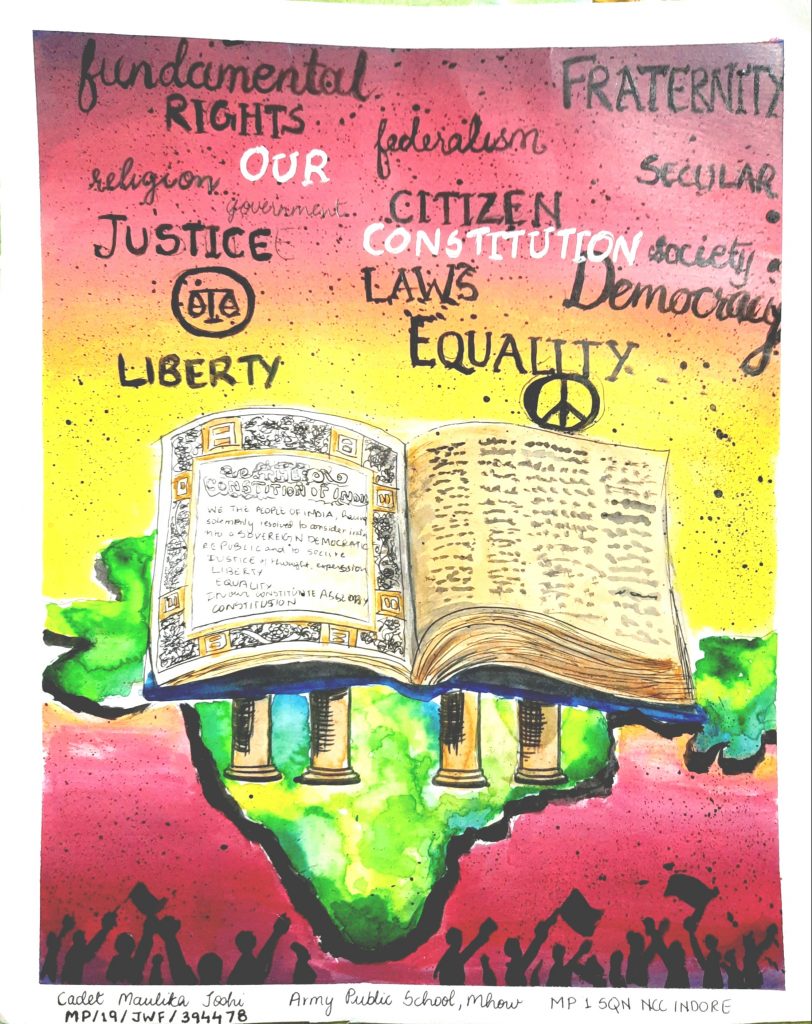 fundamental
RIGHTS
FRATERNITY
federalism
OUR
religion
SECULAR
government
CITIZEN
JUSTICE
CONSTITUTION
society
LAWS
Democracy
EQUALITY
LIBERTY
CONSTITUTION OF INDIA
WE THE PEOPLE OF INDIA, having
solemnly resolved to consider
into a SOVEREIGN DEMOCRATIC
REPUBLIC and to secure
JUSTICE of thought, expression
LIBERTY
EQUALITY
In our CONSTITUNTE
CONSTITUSION
Cadet Maulika Joshi Army Public School, Mhow MP 1 SQN NCC INDORE
MP/19/JWF/394478